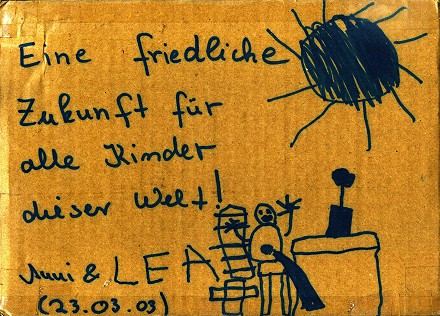 Eine friedliche
Zukunft für
alle Kinder
dieser Welt!
Anni & LEA
(23.03.03)